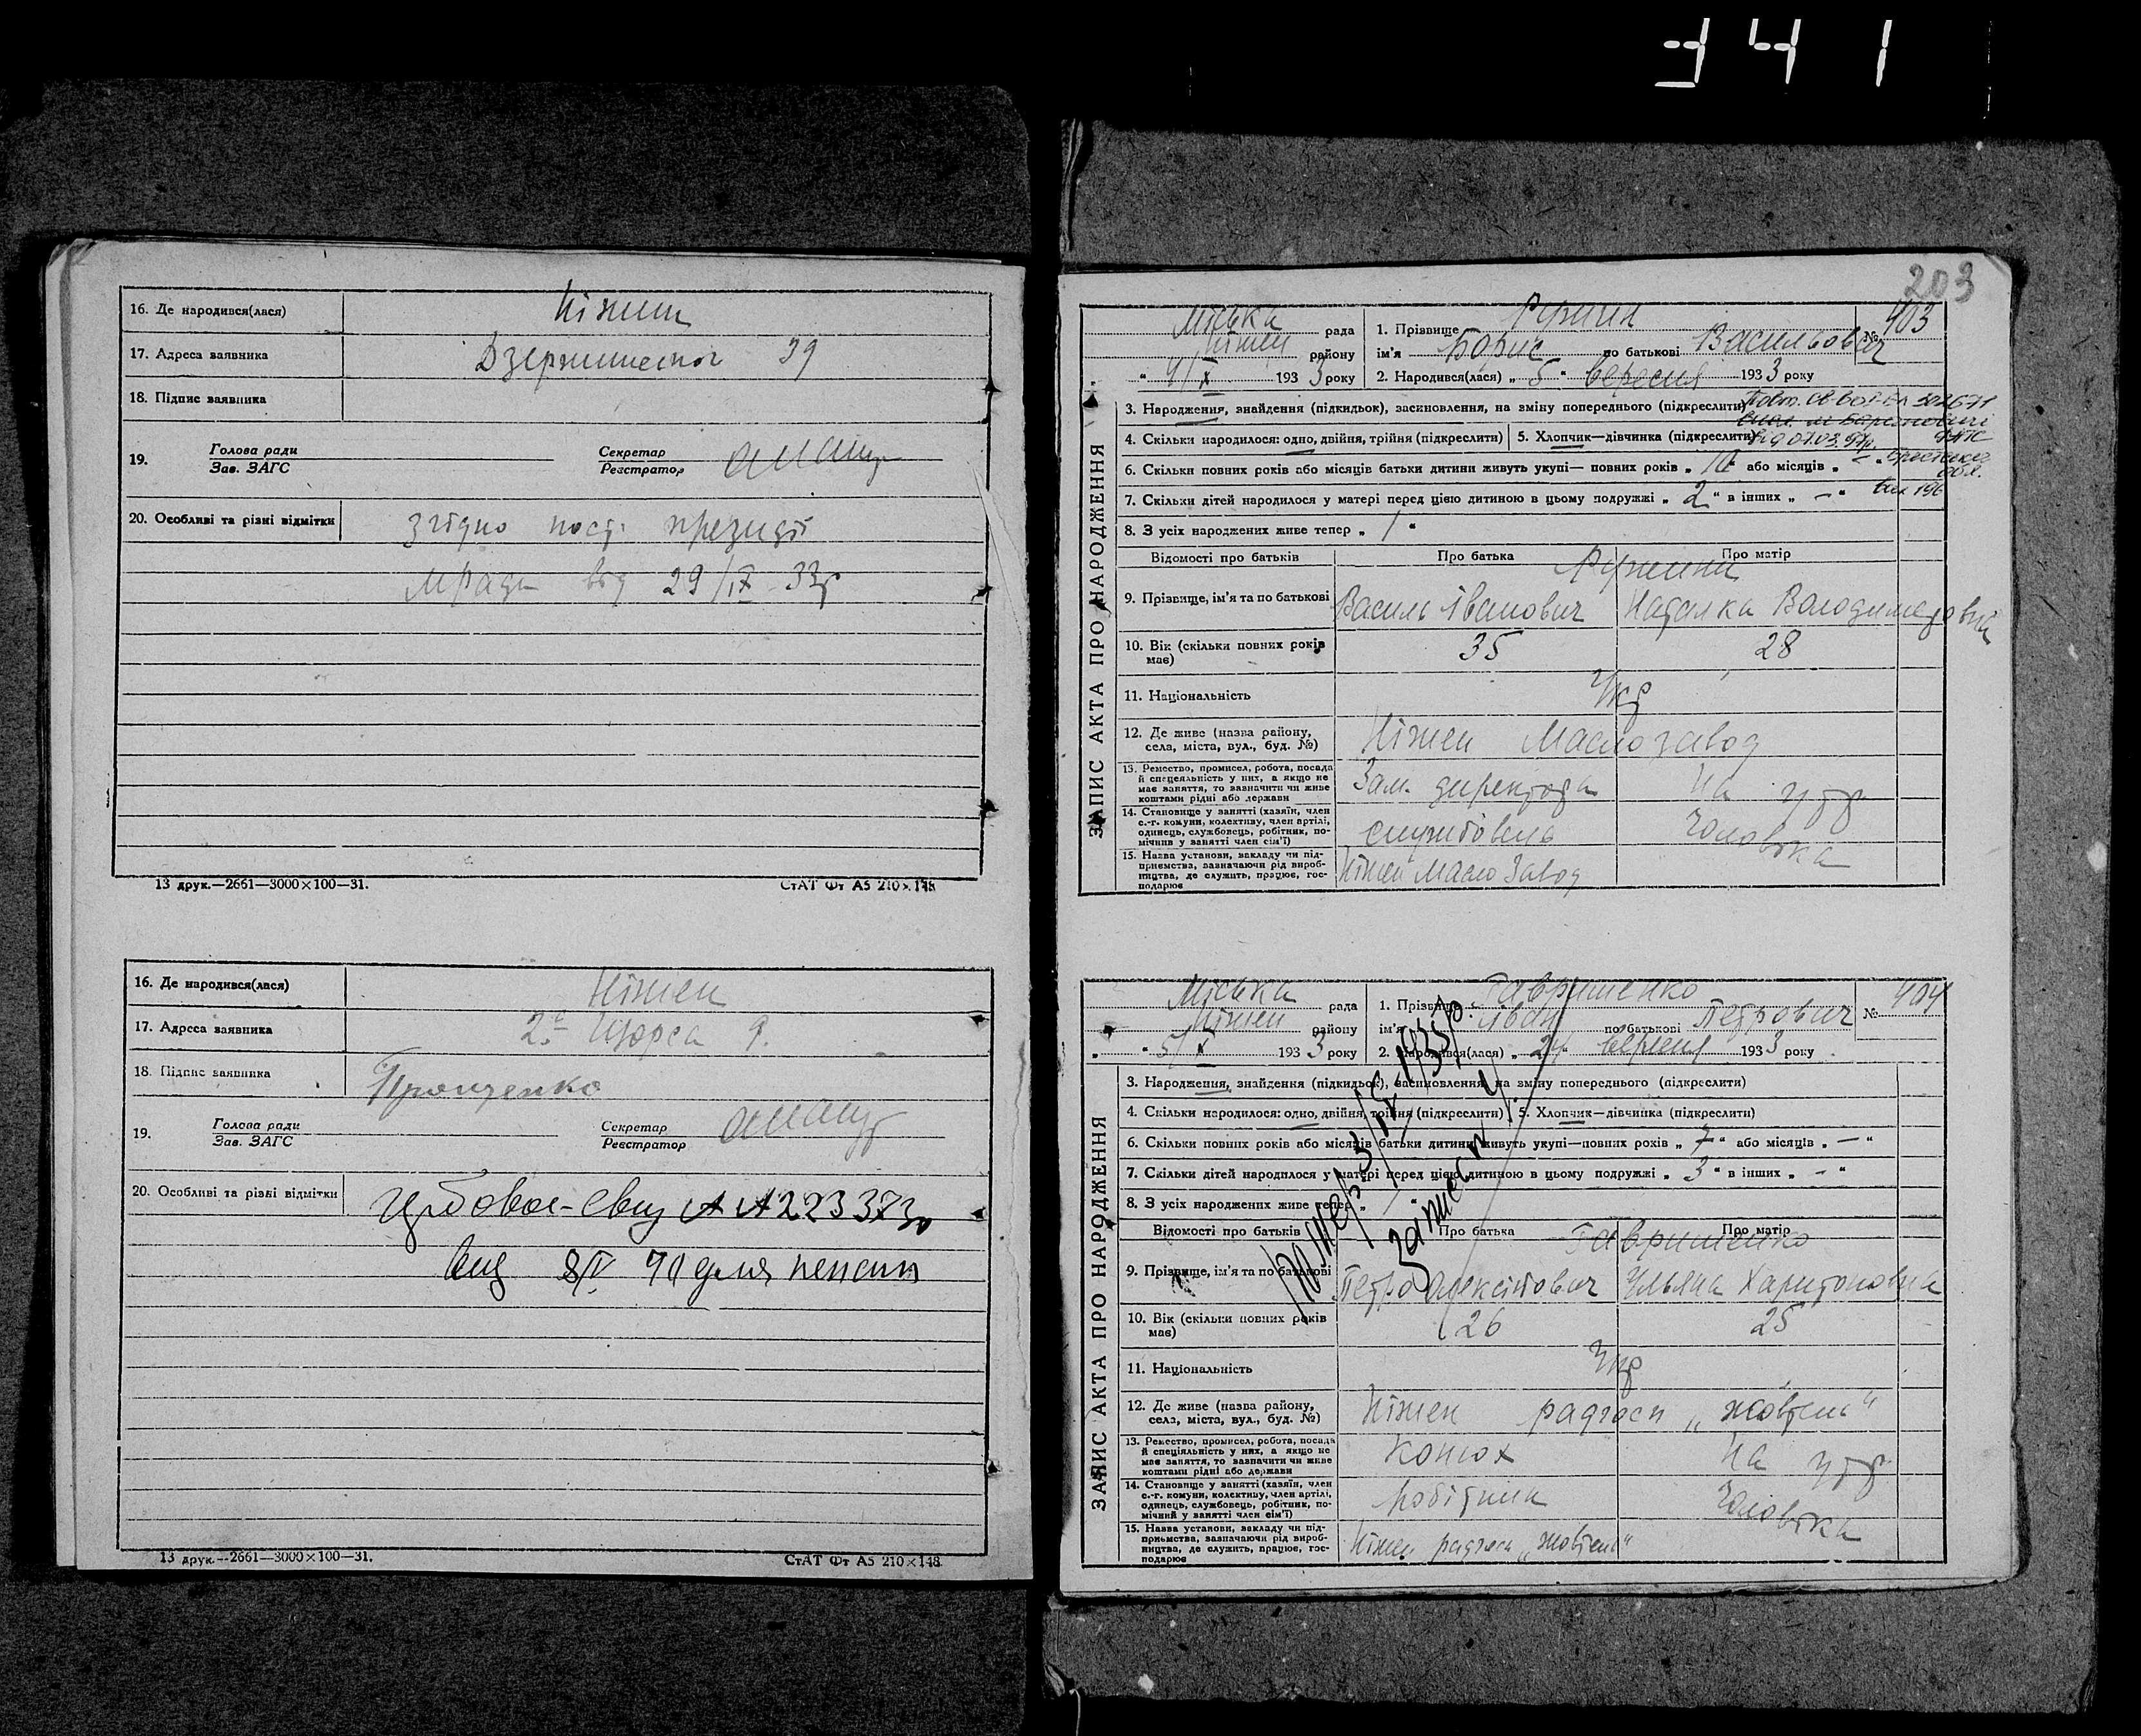 341
16. Де народився(лася) Ніжин
17. Адреса заявника Дзержинської 39
18. Підпис заявника
19. Голова ради
Зав. ЗАГС
Секретар
Реєстратор
20. Особливі та різні відмітки згідно пост. президії
мради від 29/IX-33р
13 друк.—2661—3000×100—31. СтАТ Фт А5 210×148
16. Де народився(лася) Ніжен
17. Адреса заявника 2а Щорса 9.
18. Підпис заявника Проценко
19. Голова ради
Зав. ЗАГС
Секретар
Реєстратор
20. Особливі та різні відмітки
8/V 70 для пенсии
13 друк.—2661—3000×100—31. СтАТ Фт А5 210×148
203
ЗАПИС АКТА ПРО НАРОДЖЕННЯ
Міська рада
Ніжен району
4/X 1933 року
1. Прізвище № 403
ім'я Борис по батькові Васильович
2. Народився(лася) „ 5 “ вересня 1933 року
3. Народження, знайдення (підкидьок), засиновлення, на зміну попереднього (підкреслити)
4. Скільки народилося: одно, двійня, трійня (підкреслити) 5. Хлопчик—дівчинка (підкреслити)
6. Скільки повних років або місяців батьки дитини живуть укупі— повних років „ 10 “ або місяців „ — “
7. Скільки дітей народилося у матері перед цією дитиною в цьому подружжі „ 2 “ в інших „ — “
8. З усіх народжених живе тепер „ 1 “
Відомості про батьків Про батька Про матір
9. Прізвище, ім'я та по батькові Василь Іванович Наталка Володимировна
10. Вік (скільки повних років має) 35 28
11. Національність Укр
12. Де живе (назва району, села, міста, вул., буд. №) Ніжен Маслозавод
13. Ремество, промисел, робота, посада й спеціяльність у них, а якщо не має заняття, то зазначити чи живе коштами рідні або держави Зам. директора На утр
14. Становище у занятті (хазяїн, член с.-г. комуни, колективу, член артілі, одинець, службовець, робітник, помічник у занятті член сім'ї) службовець Чоловіка
15. Назва установи, закладу чи підприємства, зазначаючи рід виробництва, де служить, працює, господарює Ніжен Масло Завод
ЗАПИС АКТА ПРО НАРОДЖЕННЯ
Міська рада
Ніжен району
5/X 1933 року
1. Прізвище Гавришенко № 404
ім'я Іван по батькові Петрович
2. Народився(лася) „ 24 “ вересня 1933 року
3. Народження, знайдення (підкидьок), засиновлення, на зміну попереднього (підкреслити)
4. Скільки народилося: одно, двійня, трійня (підкреслити) 5. Хлопчик—дівчинка (підкреслити)
6. Скільки повних років або місяців батьки дитини живуть укупі—повних років „ 7 “ або місяців „ — “
7. Скільки дітей народилося у матері перед цією дитиною в цьому подружжі „ 3 “ в інших „ — “
8. З усіх народжених живе тепер „
Відомості про батьків Про батька Про матір
Гавришенко
9. Прізвище, ім'я та по батькові Петро Олексійович Ульяна Харитоновна
10. Вік (скільки повних років має) 26 25
11. Національність Укр
12. Де живе (назва району, села, міста, вул., буд. №) Ніжен радгосп „Жовтень“
13. Ремество, промисел, робота, посада й спеціяльність у них, а якщо не має заняття, то зазначити чи живе коштами рідні або держави Конюх На утр
14. Становище у занятті (хазяїн, член с.-г. комуни, колективу, член артілі, одинець, службовець, робітник, помічний у занятті член сім'ї) Робітник Чоловіка
15. Назва установи, закладу чи підприємства, зазначаючи рід виробництва, де служить, працює, господарює Ніжен радгосп „Жовтень“